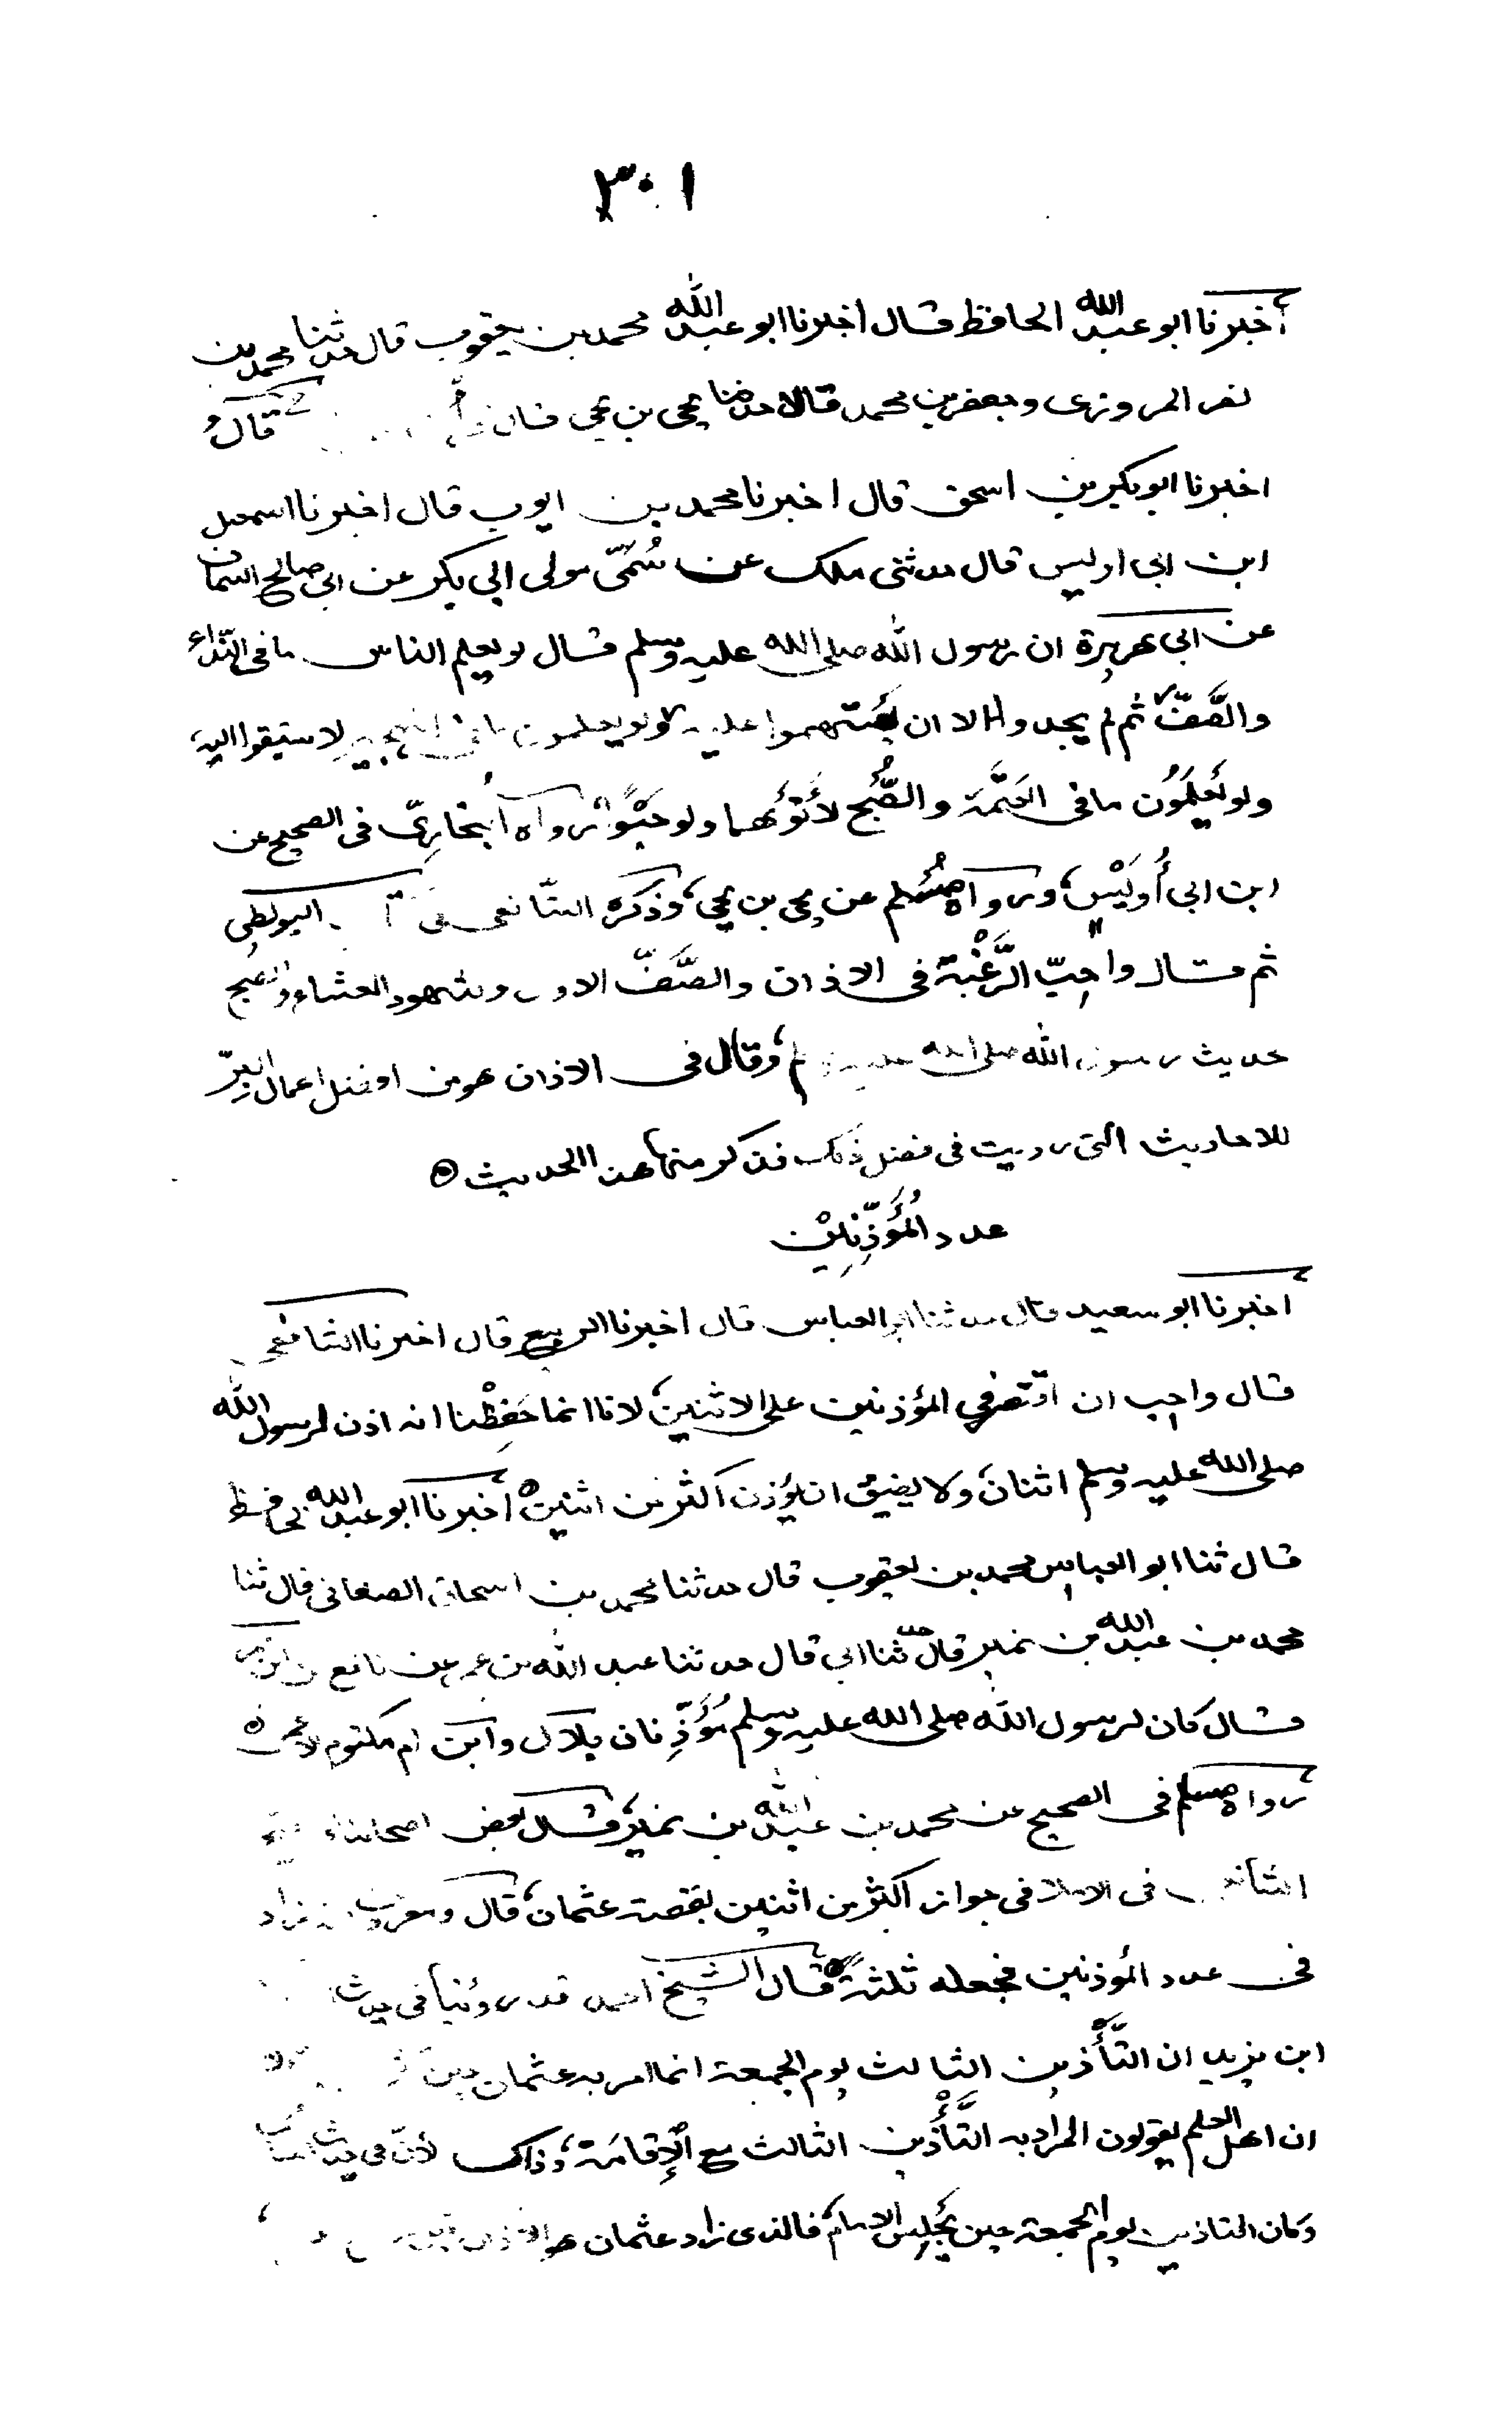 ٣٠١
أخبرنا ابو عبد الله الحافظ قال اخبرنا ابو عبد الله محمد بن يعقوب قال حدثنا محمد بن
نصر المروزى وجعفر بن محمد قالا حدثنا يحيى بن يحيى قال قال
اخبرنا ابو بكر بن اسحق قال اخبرنا محمد بن ايوب قال اخبرنا اسمعيل
ابن ابى اويس قال حدثنى ملك عن سُمَىّ مولى ابى بكر عن ابى صالح السمان
عن ابى هريرة ان رسول الله صلى الله عليه وسلم قال لو يعلم الناس ما فى النّداء
والصَّفّ ثم لم يجدوا الا ان يستهموا عليه ولو يعلمون ما فى التهجير لاستبقوا اليه
ولو يُعلَمُون ما فى العَتَمَة والصُّبح لأَتَوْهما ولو حَبْوًا رواه البخارىّ فى الصحيح عن
ابن ابى أُوَيْس، ورواه مُسْلم عن يحيى بن يحيى، وذكره الشّافعى فى البويطى
ثم قال واحبّ الرَّغْبة فى الاذان والصَّفّ الاول وشهود العشاء والصبح
حديث رسول الله صلى الله عليه وسلم، وقال فى الاذان هو من افضل اعمال البِرّ
للاحاديث التى رويت فى فضل ذلك فذكر منها هذا الحديث ه
عدد المُؤَذِّنِيْن
اخبرنا ابو سعيد قال حدثنا ابو العباس قال اخبرنا الربيع قال اخبرنا الشافعى
قال واحب ان اقتصر فى المؤذنين على الاثنين، لانا انما حَفِظْنا انه اذن لرسول الله
صلى الله عليه وسلم اثنان، ولا يضيق ان يؤذن اكثر من اثنين ه أخبرنا ابو عبد الله الحافظ
قال ثنا ابو العباس محمد بن يعقوب قال حدثنا محمد بن اسحاق الصغانى قال ثنا
محمد بن عبد الله بن نمير قال حدّثنا ابى قال حدثنا عبيد الله بن عمر عن نافع عن ابن عمر
قال كان لرسول الله صلى الله عليه وسلم مُؤَذِّنان بلال وابن ام مكتوم الاعمى ه
رواه مسلم فى الصحيح عن محمد بن عبد الله بن نمير، قال بعض اصحابنا
الشافعى فى الاملا فى جواز اكثر من اثنين بقصة عثمان، قال ومعروف انه زاد
فى عدد المُوذنين فجعله ثلثة ه قال الشيخ احمد قد روينا فى حديث
ابن يزيد ان التَّأْذين الثالث يوم الجمعة انما امر به عثمان حين
ان اهل العلم يقولون المراد به التَّأْذين الثالث مع الإِقامَة، وذاك لأنّ فى حديث السائب
وكان التاذين يوم الجمعة حين يَجْلِس الامام، فالذى زاد عثمان هو الاذان